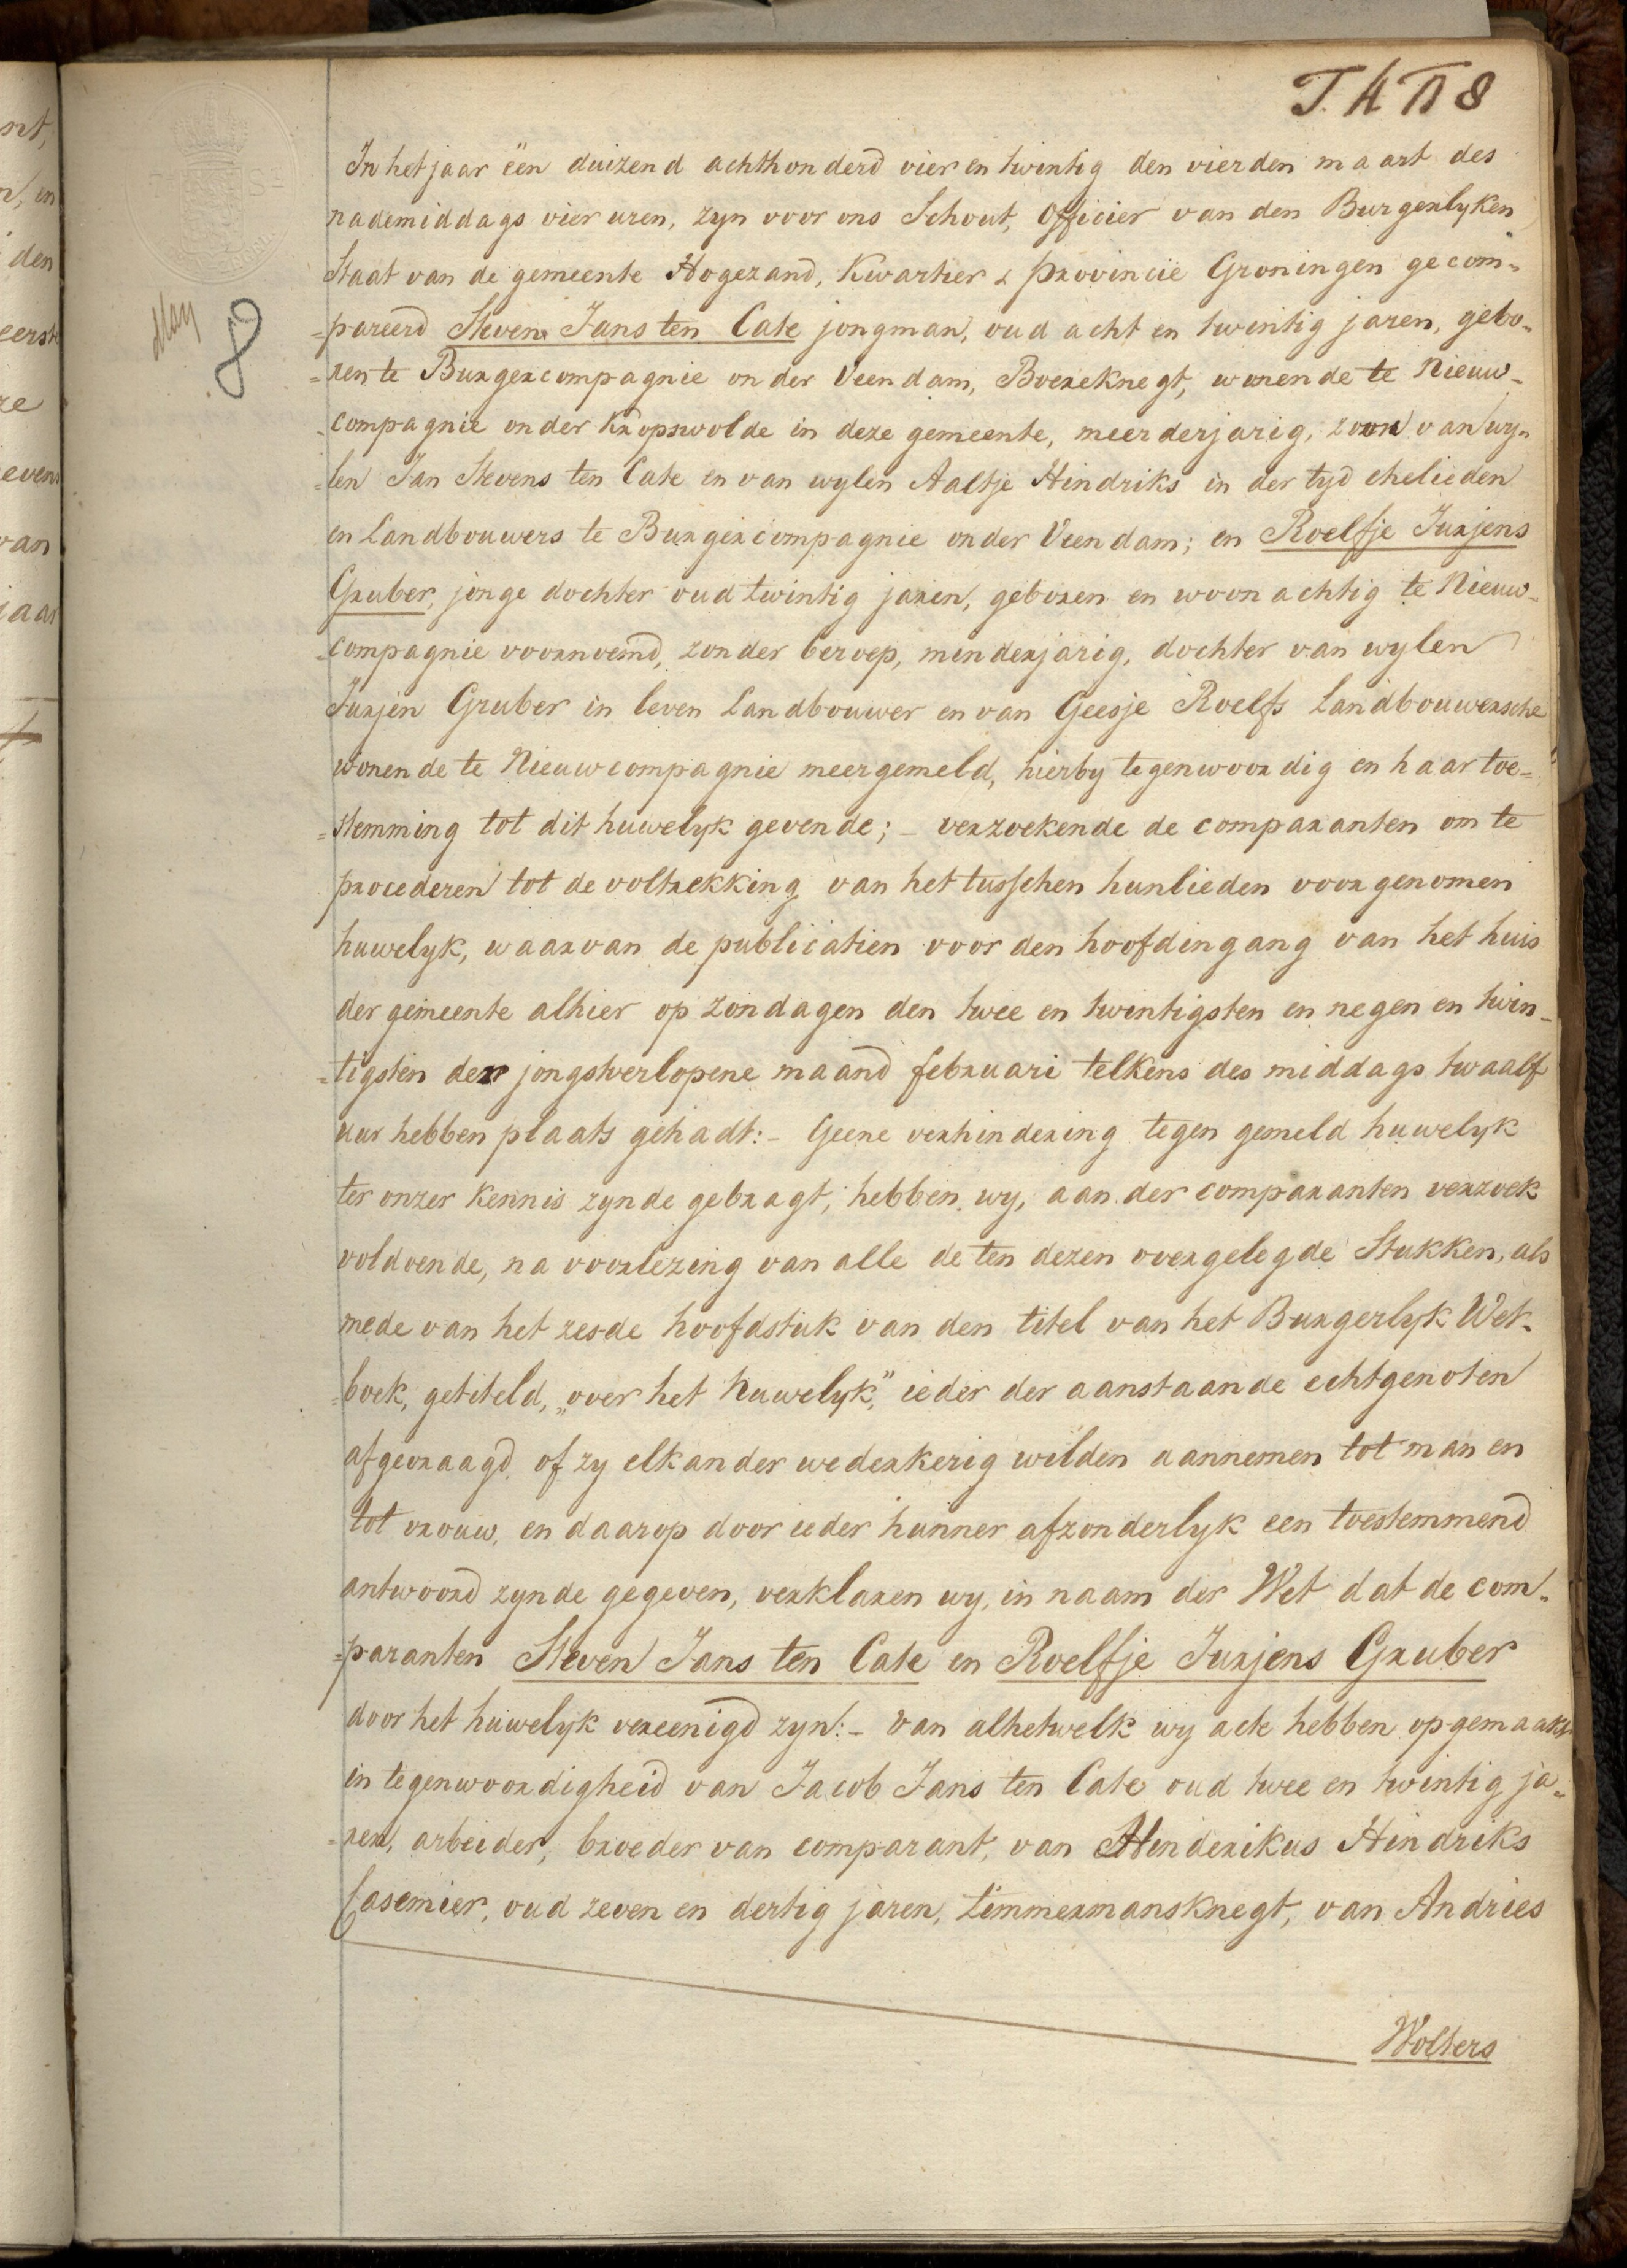 T. 4 N 8
In het jaar één duizend achthonderd vier en twintig den vierden maart des
nademiddags vier uren, zyn voor ons Schout, Officier van den Burgerlyken
Staat van de gemeente Hogezand, Kwartier & provincie Groningen gecom-
=pareerd Steven Jans ten Cate jongman, oud acht en twintig jaren, gebo-
=ren te Burgercompagnie onder Veendam, Boereknegt, wonende te Nieuw-
compagnie onder Kropswolde in deze gemeente, meerderjarig, zoon van wy-
=len Jan Stevens ten Cate en van wylen Aaltje Hindriks in der tyd ehelieden
en Landbouwers te Burgercompagnie onder Veendam; en Roelfje Jurjens
Gruber, jonge dochter oud twintig jaren, geboren en woonachtig te Nieuw-
=compagnie voornoemd, zonder beroep, minderjarig, dochter van wylen
Jurjen Gruber in leven Landbouwer en van Geesje Roelfs Landbouwersche
wonende te Nieuwcompagnie meergemeld, hierby tegenwoordig en haar toe-
=stemming tot dit huwelyk gevende; - verzoekende de comparanten om te
procederen tot de voltrekking van het tusschen hunlieden voorgenomen
huwelyk, waarvan de publicatien voor den hoofdingang van het huis
der gemeente alhier op zondagen den twee en twintigsten en negen en twin-
=tigsten der jongstverlopene maand februari telkens des middags twaalf
uur hebben plaats gehadt: - Geene verhindering tegen gemeld huwelyk
ter onzer kennis zynde gebragt, hebben wy, aan der comparanten verzoek
voldoende, na voorlezing van alle de ten dezen overgelegde Stukken, als
mede van het zesde hoofdstuk van den titel van het Burgerlyk Wet-
=boek, getiteld, „over het huwelyk," ieder der aanstaande echtgenoten
afgevraagd of zy elkander wederkerig wilden aannemen tot man en
tot vrouw, en daarop door ieder hunner afzonderlyk een toestemmend
antwoord zynde gegeven, verklaren wy, in naam der Wet dat de com-
=paranten Steven Jans ten Cate en Roelfje Jurjens Gruber
door het huwelyk vereenigd zyn: - Van alhetwelk wy acte hebben opgemaakt
in tegenwoordigheid van Jacob Jans ten Cate oud twee en twintig ja-
=ren, arbeider, broeder van comparant, van Hinderikus Hindriks
Casemier, oud zeven en dertig jaren, timmermansknegt, van Andries
Wolters
8
nt,
n, en
den
eerste
ze
even
van
jaar